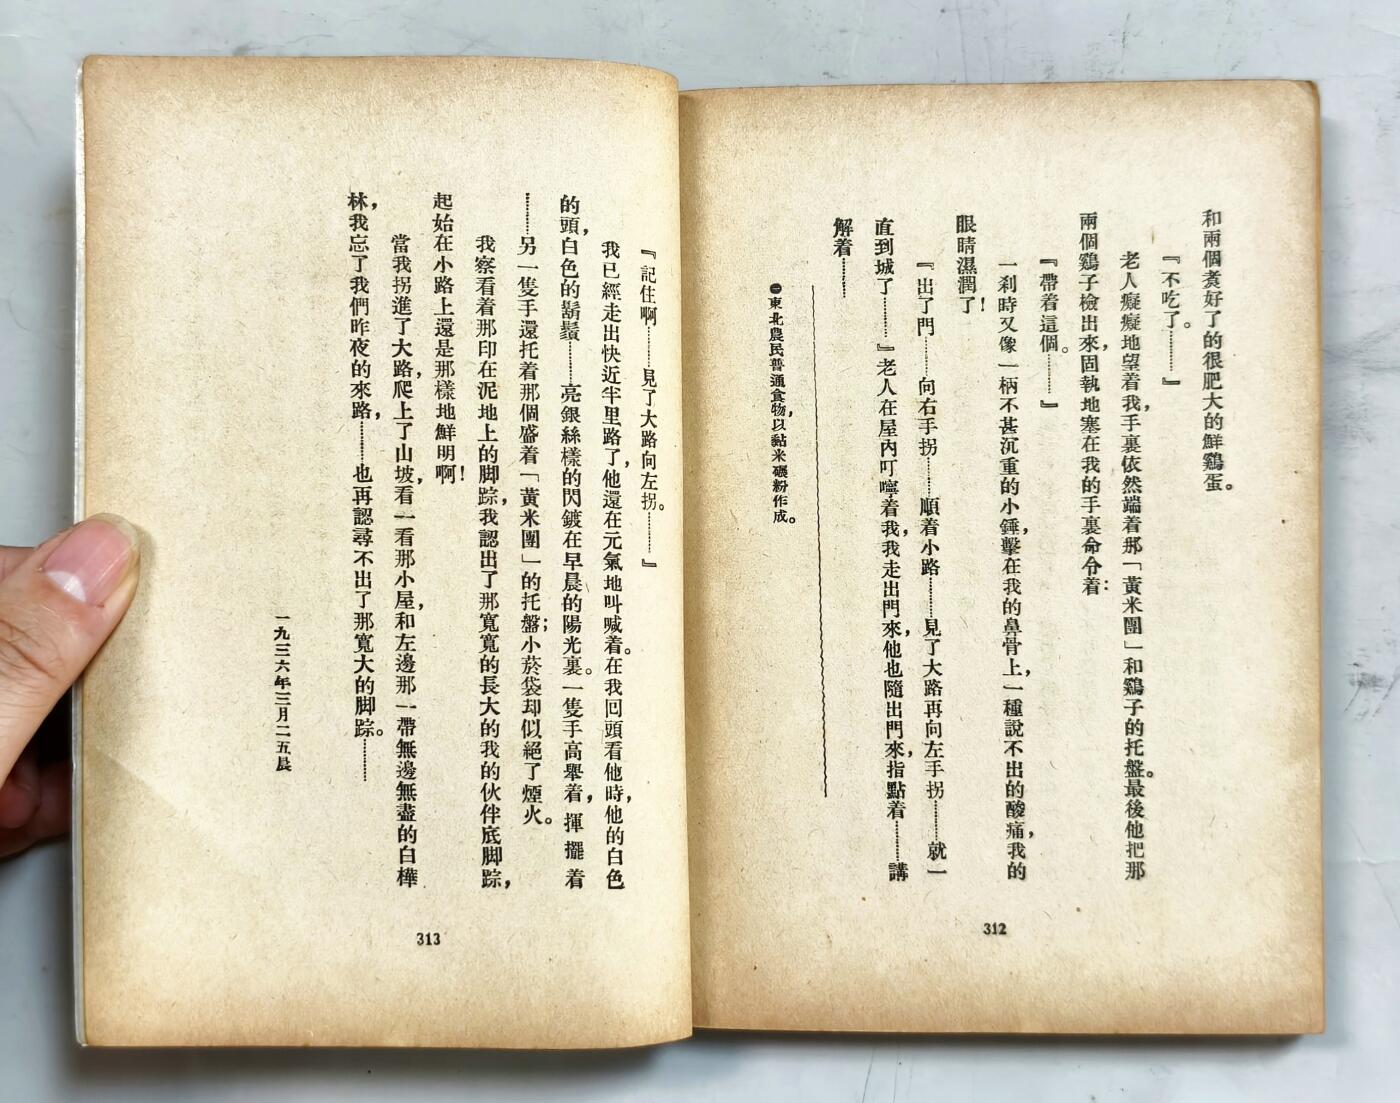 和兩個煮好了的很肥大的鮮鷄蛋。
『不吃了。………』
老人癡癡地望着我，手裏依然端着那「黃米團」和鷄子的托盤。最後他把那
兩個鷄子檢出來，固執地塞在我的手裏命令着：
『帶着這個。………』
一刹時又像一柄不甚沉重的小錘，擊在我的鼻骨上，一種說不出的酸痛，我的
眼睛濕潤了！
『出了門………向右手拐………順着小路………見了大路再向左手拐………就一
直到城了………』老人在屋內叮嚀着我，我走出門來，他也隨出門來，指點着………講
解着………
㊀東北農民普通食物，以黏米碾粉作成。
312
『記住啊………見了大路向左拐。………』
我已經走出快近半里路了，他還在元氣地叫喊着。在我回頭看他時，他的白色
的頭，白色的鬍鬚………亮銀絲樣的閃鍍在早晨的陽光裏。一隻手高舉着，揮擺着
………另一隻手還托着那個盛着「黃米團」的托盤；小菸袋却似絕了煙火。
我察看着那印在泥地上的脚踪，我認出了那寬寬的長大的我的伙伴底脚踪，
起始在小路上還是那樣地鮮明啊！
當我拐進了大路，爬上了山坡，看一看那小屋，和左邊那一帶無邊無盡的白樺
林，我忘了我們昨夜的來路，………也再認尋不出了那寬大的脚踪。………
一九三六年三月二五晨
313